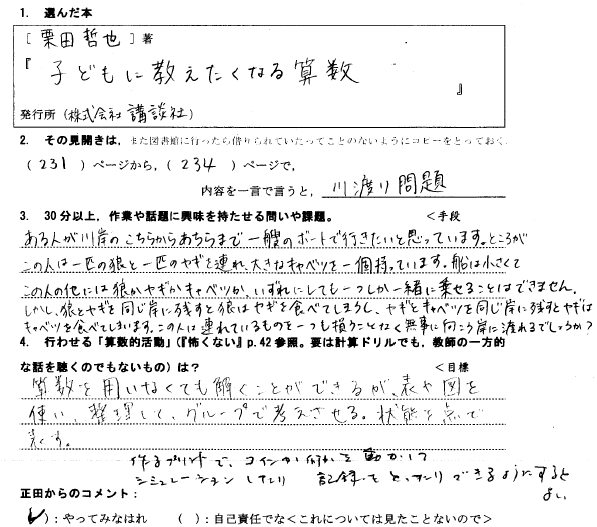 1. 選んだ本
[ 栗田哲也 ] 著
『 子どもに教えたくなる算数 』
発行所 (株式会社 講談社)
2. その見開きは、また図書館に行ったら借りられていたってことのないようにコピーをとっておく.
( 231 ) ページから, ( 234 ) ページで,
内容を一言で言うと, 川渡り問題
3. 30分以上, 作業や話題に興味を持たせる問いや課題。 <手段
ある人が川岸のこちらからあちらまで一艘のボートで行きたいと思っています。ところが
この人は一匹の狼と一匹のヤギを連れ、大きなキャベツを一個持っています。船は小さくて
この人の他には狼かヤギかキャベツか、いずれにしても一つしか一緒に乗せることはできません。
しかし、狼とヤギを同じ岸に残すと狼はヤギを食べてしまうし、ヤギとキャベツを同じ岸に残すとヤギは
キャベツを食べてしまいます。この人は連れているものを一つも損うことなく無事に向こう岸に渡れるでしょうか?
4. 行わせる「算数的活動」(『怖くない』p.42参照。要は計算ドリルでも, 教師の一方的
な話を聴くのでもないもの) は? <目標
算数を用いなくても解くことができるが、表や図を
使い、整理して、グループで考えさせる。状態を点で
表す。
作るプリントで、コインか何かを動かして
シミュレーションしたり 記録をとったりできるようにすると
よい
正田からのコメント:
(✓): やってみなはれ ( ): 自己責任でな<これについては見たことないので>